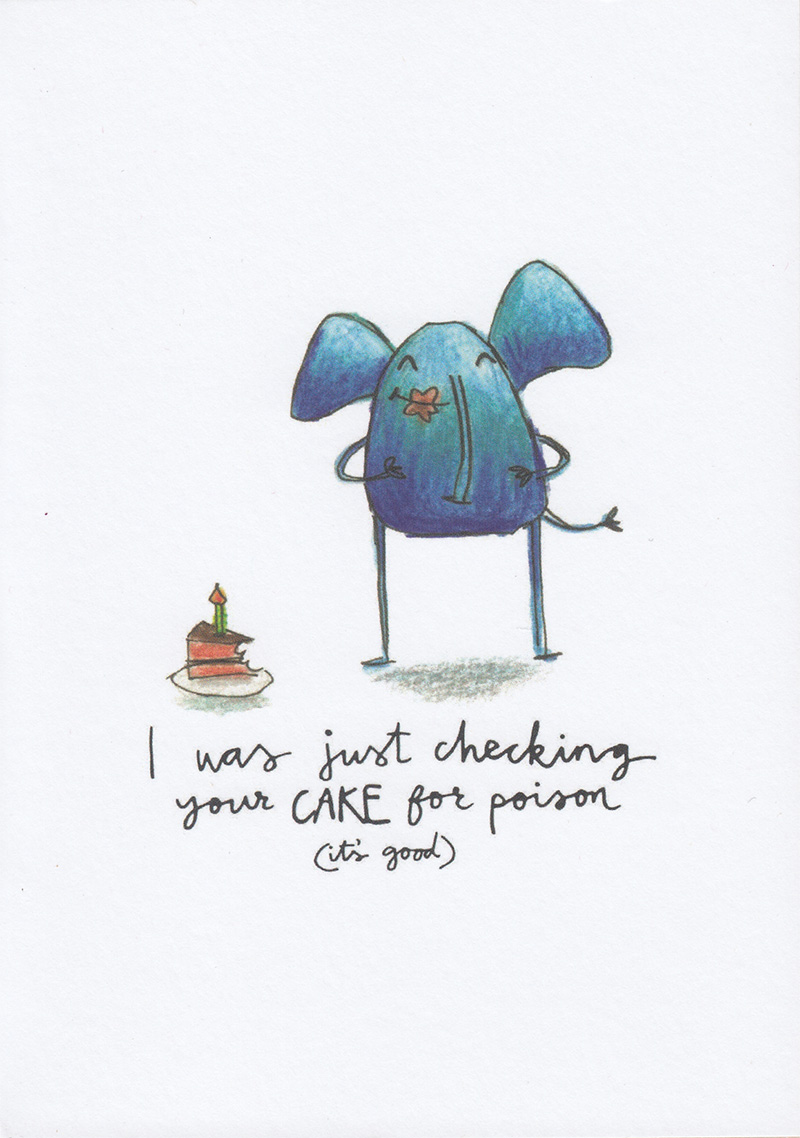 I was just checking
your CAKE for poison
(it's good)